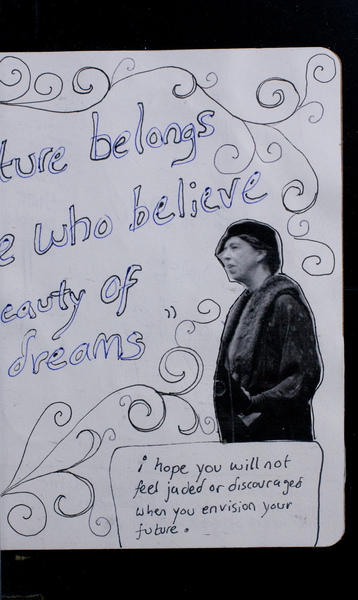 ture belongs
e who believe
eauty of
dreams"
i hope you will not
feel jaded or discouraged
when you envision your
future.